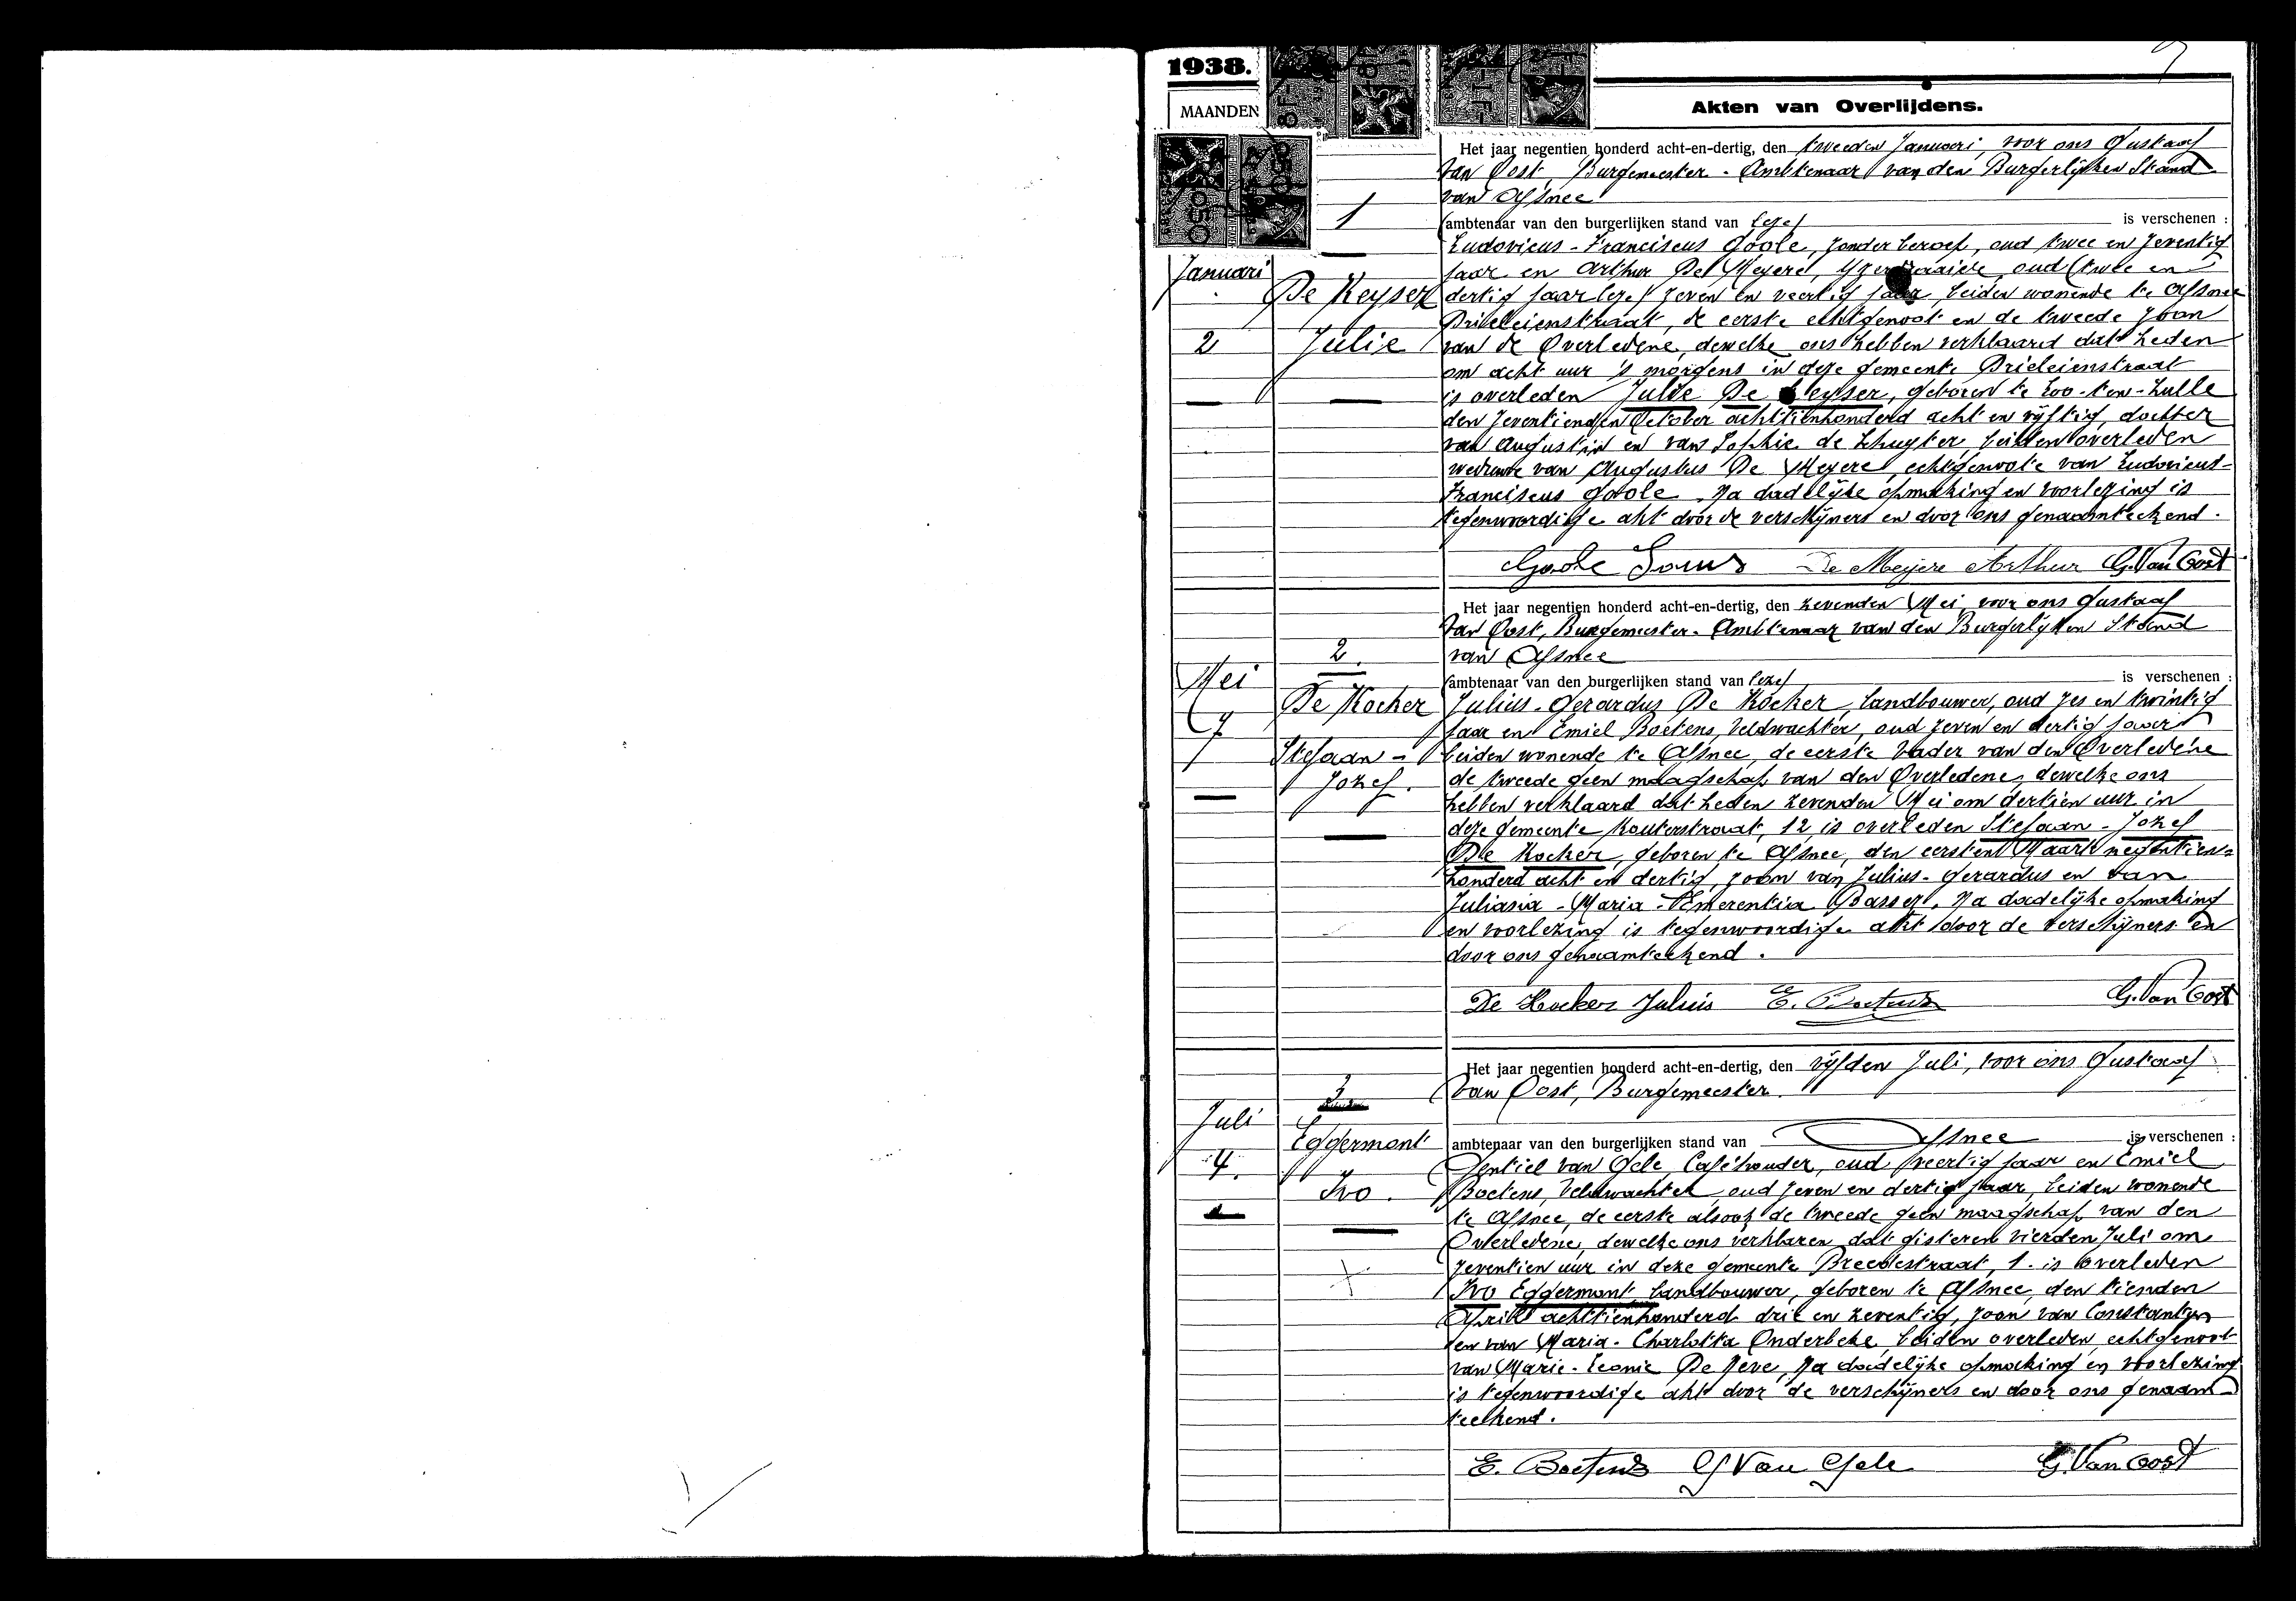 1938.
MAANDEN
Akten van Overlijdens.
Het jaar negentien honderd acht-en-dertig, den tweeden Januari, voor ons Gustaaf
Van Oost, Burgemeester - Ambtenaar van den Burgerlijken Stand
van Afsnee
1
(ambtenaar van den burgerlijken stand van lezes is verschenen :
Ludovicus - Franciscus Goole, zonder beroep, oud twee en zeventig
Januari
jaar en Arthur De Meyere, oud (twee en
De Keyser
dertig jaar lezes) zeven en veertig jaar, beiden wonende te Afsnee
Prieleienstraat, de eerste echtgenoot en de tweede zoon
2
Julie
van de Overledene, dewelke ons hebben verklaard dat heden
om acht uur 's morgens in deze gemeente Prieleienstraat
is overleden Julie De Keyser, geboren te Loo-ten-Hulle
den zeventienden October achttienhonderd acht en vijftig, dochter
van Augustin en van Sophie de Schuyter, beiden overleden
weduwe van Augustus De Meyere, echtgenoote van Ludovicus-
Franciscus Goole. Na dadelijke opmaking en voorlezing is
tegenwoordige akt door de verschijners en door ons genaamteekend.
Goole Louis De Meyere Arthur G. Van Oost
Het jaar negentien honderd acht-en-dertig, den zevenden Mei, voor ons Gustaaf
Van Oost, Burgemeester - Ambtenaar van den Burgerlijken Stand
2.
van Afsnee
Mei
(ambtenaar van den burgerlijken stand van lezes is verschenen :
De Kocker
Julius - Gerardus De Kocker, landbouwer, oud zes en twintig
7
jaar en Emiel Boetens, veldwachter, oud zeven en dertig jaar
Stefaan -
beiden wonende te Afsnee, de eerste vader van den Overledene
Jozef.
de tweede geen maagschap van den Overledene, dewelke ons
hebben verklaard dat heden zevenden Mei om dertien uur in
deze gemeente Kouterstraat, 12, is overleden Stefaan - Jozef
De Kocker, geboren te Afsnee, den eersten Maart negentien-
honderd acht en dertig, zoon van Julius - Gerardus en van
Juliana - Maria - Emerentia Passer. Na dadelijke opmaking
en voorlezing is tegenwoordige akt door de verschijners en
door ons genaamteekend.
De Kocker Julius E. Boetens G. Van Oost
Het jaar negentien honderd acht-en-dertig, den vijfden Juli, voor ons Gustaaf
3
Van Oost, Burgemeester.
Juli
Eggermont
ambtenaar van den burgerlijken stand van Afsnee is verschenen :
4.
Gentiel van Gele, Caféhouder, oud veertig jaar en Emiel
Ivo.
Boetens, Veldwachter, oud zeven en dertig jaar, beiden wonende
te Afsnee, de eerste alsook de tweede geen maagschap van den
Overledene, dewelke ons verklaren dat gisteren vierden Juli om
zeventien uur in deze gemeente Breedestraat, 1. is overleden
Ivo Eggermont, landbouwer, geboren te Afsnee, den tienden
April achttienhonderd drie en zeventig, zoon van Constantyn
en van Maria - Charlotta Onderbeke, beiden overleden, echtgenoot
van Marie - Leonie De Neve. Na dadelijke opmaking en voorlezing
is tegenwoordige akt door de verschijners en door ons genaam-
teekend.
E. Boetens G Van Gele G. Van Oost